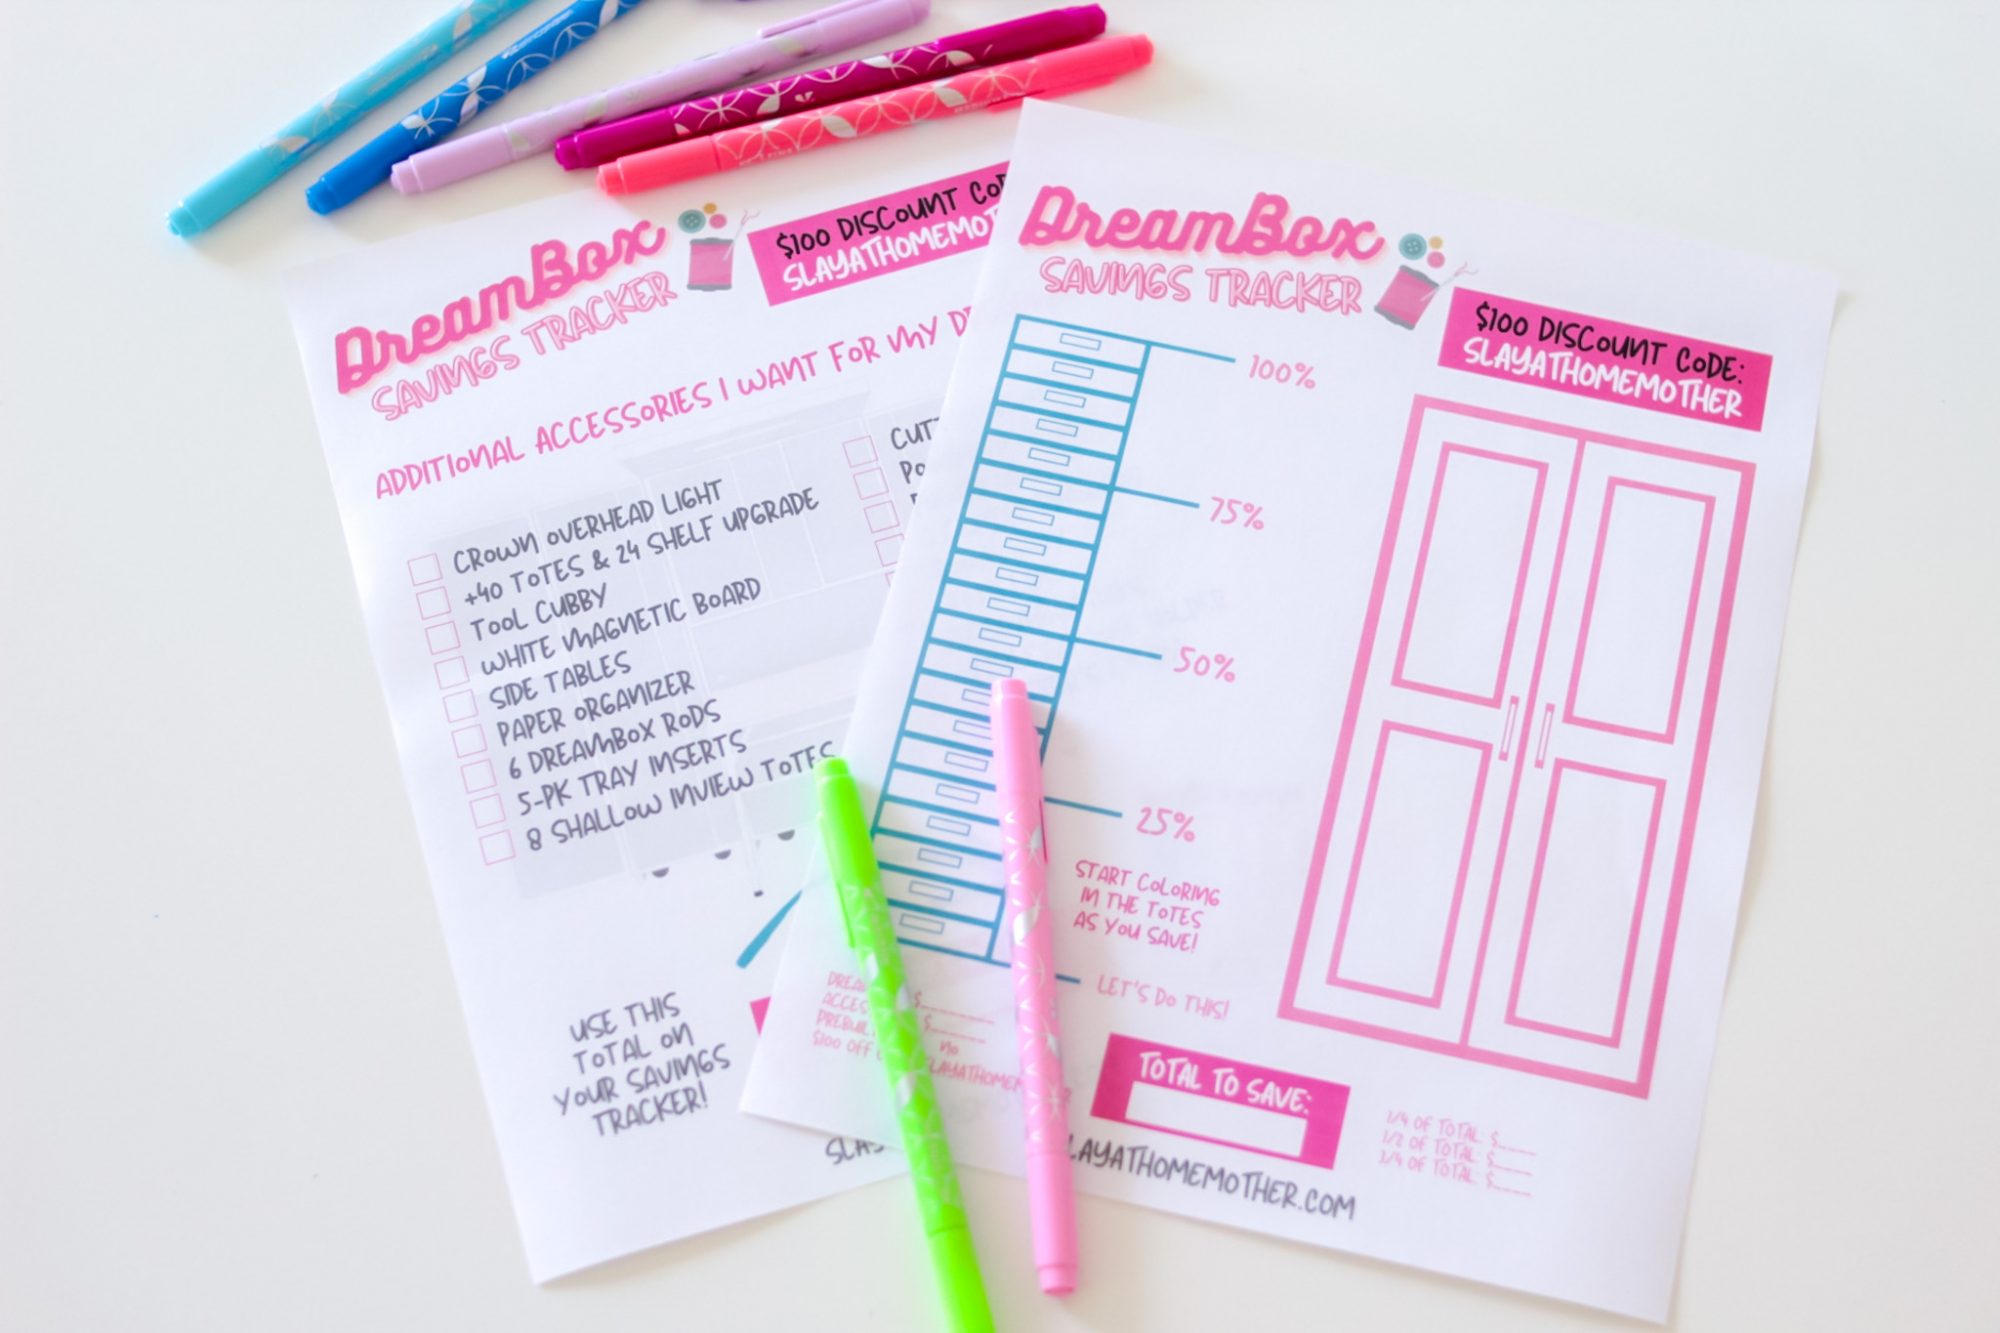 DreamBox
SAVINGS TRACKER
$100 DISCOUNT
SLAYATHOMEMOT
ADDITIONAL ACCESSORIES I WANT FOR MY
CROWN OVERHEAD LIGHT
+40 TOTES & 24 SHELF UPGRADE
TOOL CUBBY
WHITE MAGNETIC BOARD
SIDE TABLES
PAPER ORGANIZER
6 DREAMBOX RODS
5-PK TRAY INSERTS
8 SHALLOW INVIEW TOTES
CUT
PO
USE THIS
TOTAL ON
YOUR SAVINGS
TRACKER!
DreamBox
SAVINGS TRACKER
$100 DISCOUNT CODE:
SLAYATHOMEMOTHER
100%
75%
50%
25%
START COLORING
IN THE TOTES
AS YOU SAVE!
LET'S DO THIS!
DREA
ACCES $______
PREBUIL $______
$100 OFF no
LAYATHOMEM
TOTAL TO SAVE:
1/4 OF TOTAL: $_____
1/2 OF TOTAL: $_____
3/4 OF TOTAL: $_____
LAYATHOMEMOTHER.COM